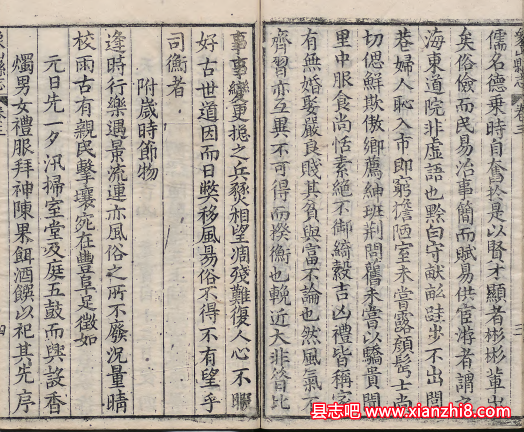 縣志 卷三 三
儒名德乘時自奮於是以賢才顯者彬彬輩出
矣俗儉而民易治事簡而賦易供宦游者謂之
海東道院非虛語也黔白守畝跬步不出閭
巷婦人恥入市即窮簷陋室未嘗露顔髩士尚
切偲鮮欺傲鄉薦紳班荊問舊未嘗以驕貴聞
里中服食尚恬素絕不御綺縠吉凶禮皆稱家
有無婚娶嚴良賤其貧與富不論也然風氣不
齊習亦互異不可得而揆衡也輓近大非昔比
事事變更揔之兵燹相望凋殘難復人心不
好古世道因而日弊移風易俗不得不有望乎
司衡者
附歲時節物
逢時行樂遇景流連亦風俗之所不廢況量晴
校雨古有親民擊壤宛在豐阜足徵如
元日先一夕汛掃室堂及庭五鼓而興設香
燭男女禮服拜神陳果餌酒饌以祀其先序
縣志 卷三 四
县志吧 www.xianzhi8.com